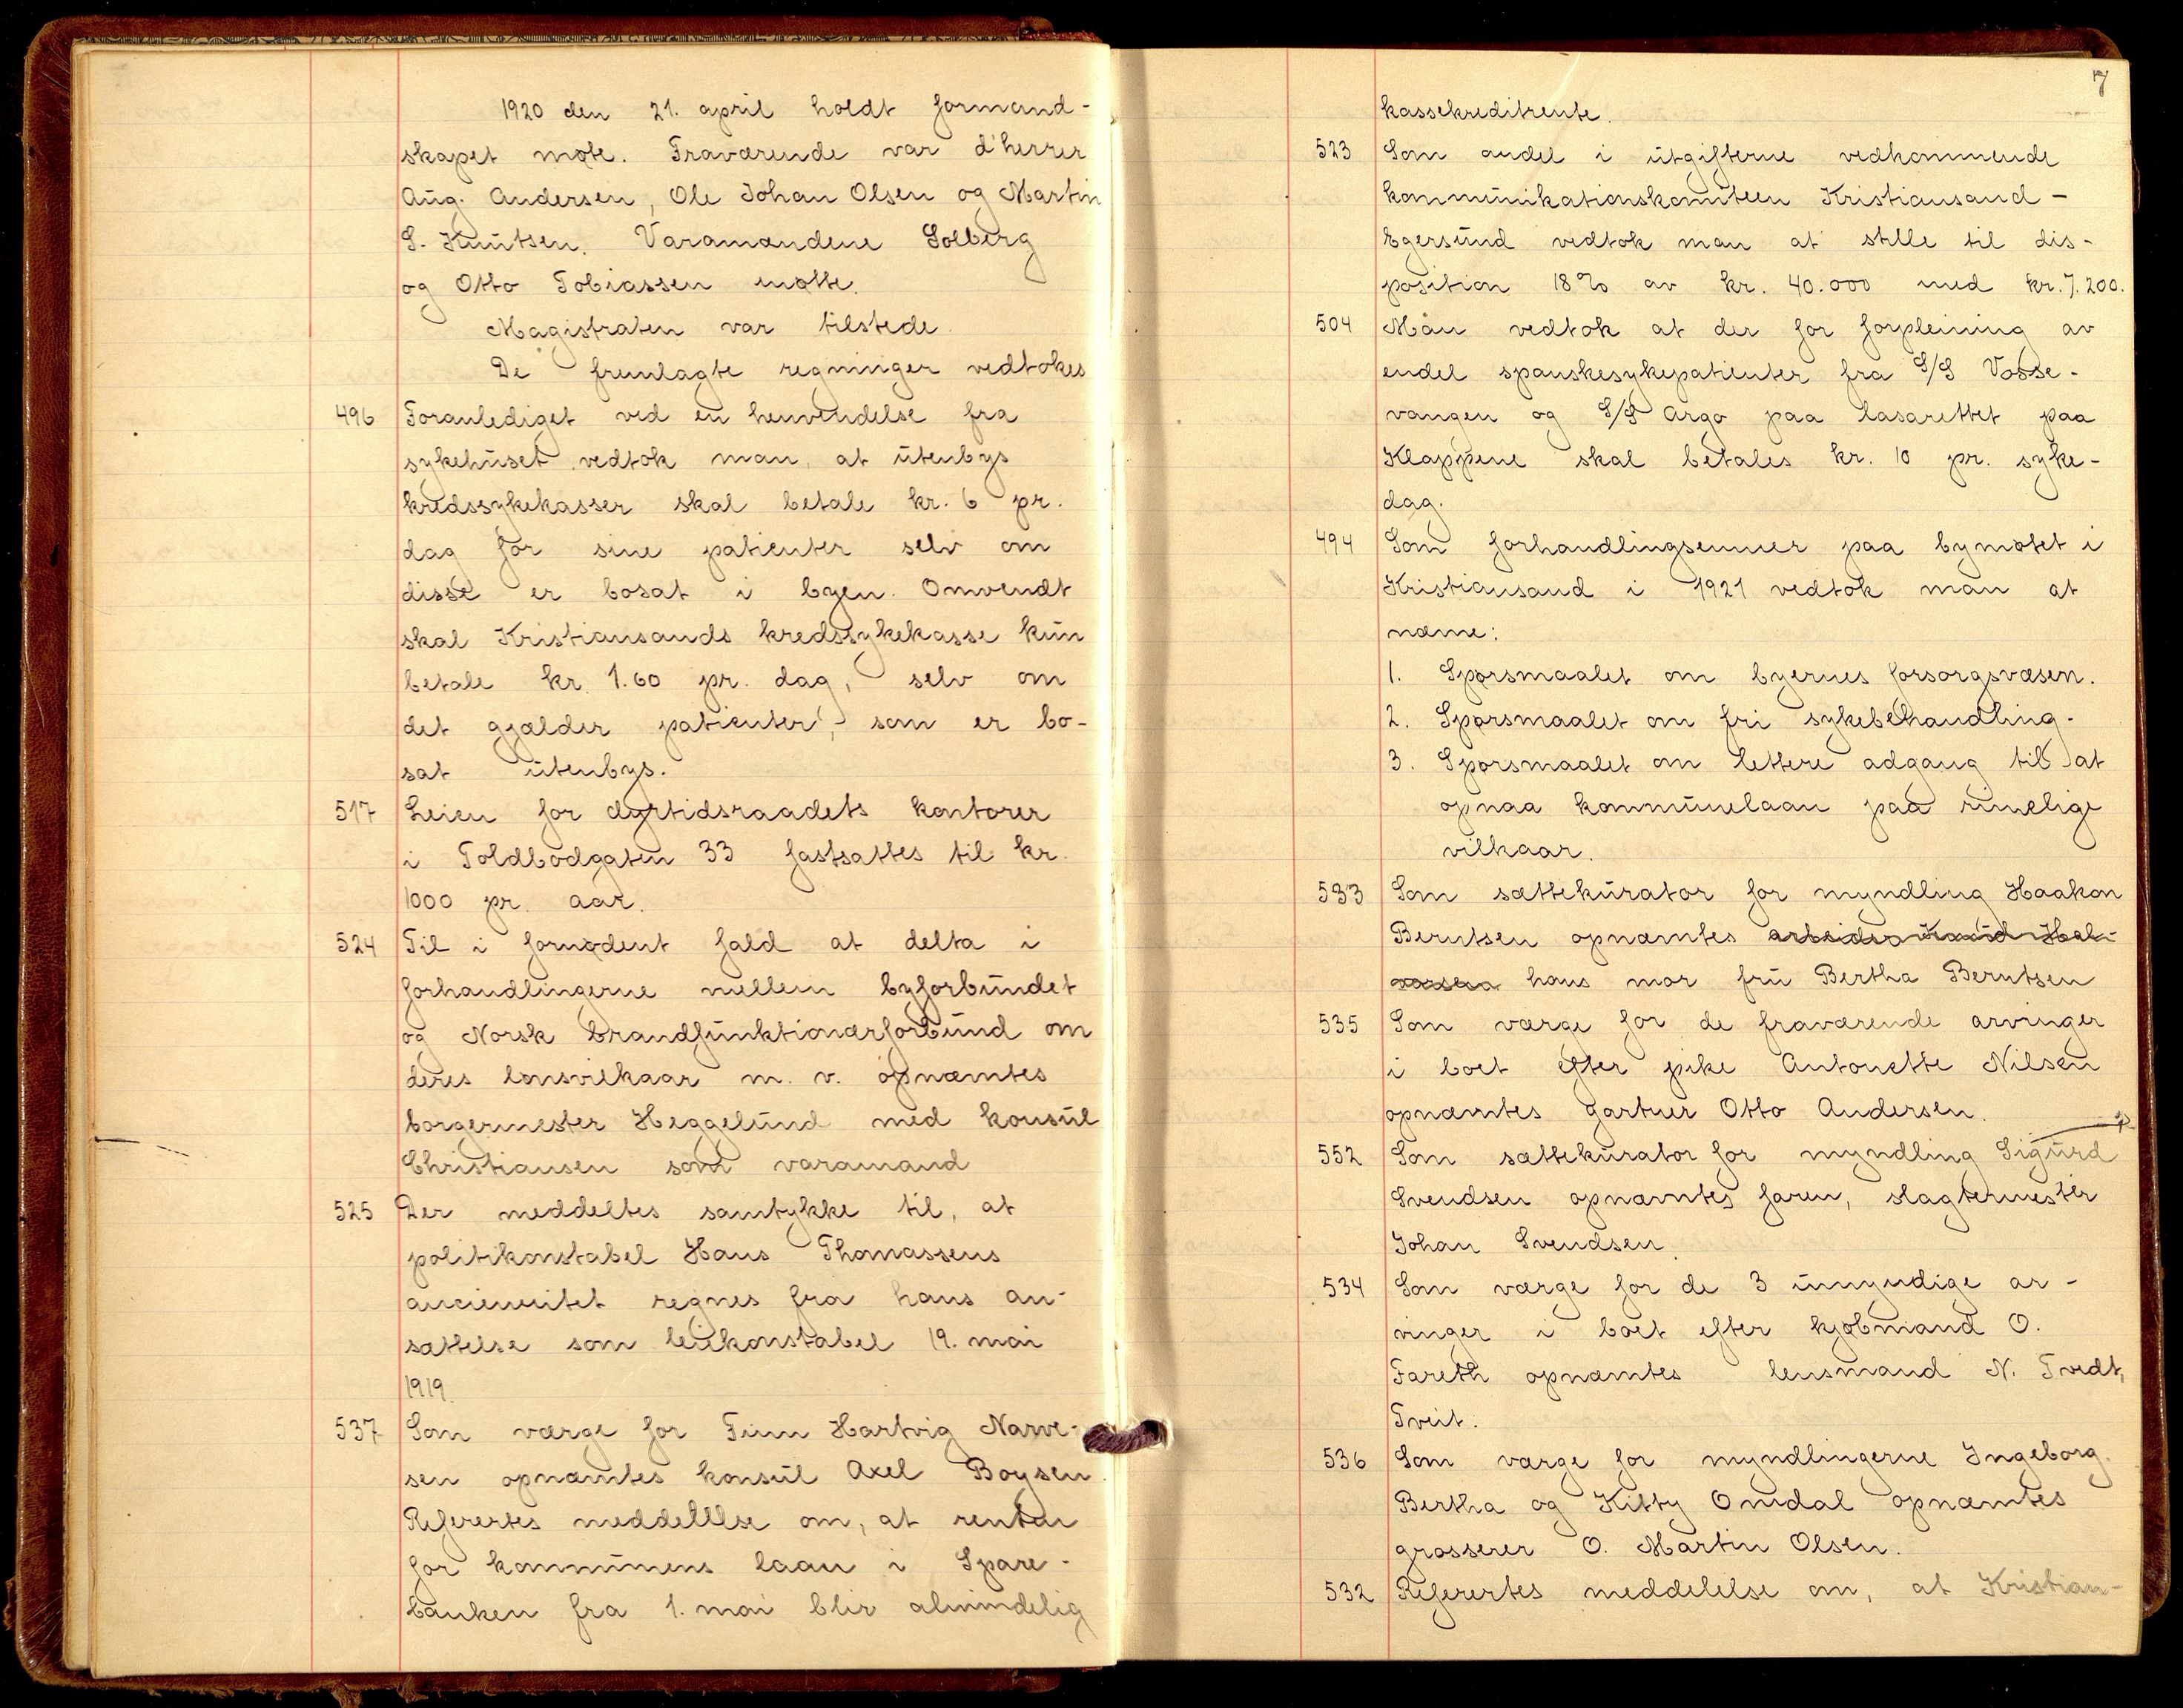 1920 den 21. april holdt formand-
skapet møte. Fraværende var d'herrer
Aug. Andersen, Ole Johan Olsen og Martin
S. Knutsen. Varamændene Solberg
og Otto Tobiassen møtte.
Magistraten var tilstede.
De fremlagte regninger vedtokes
496 Foranlediget ved en henvendelse fra
sykehuset vedtok man, at utenbys
kredssykekasser skal betale kr. 6 pr.
dag for sine patienter selv om
disse er bosat i byen. Omvendt
skal Kristiansands kredssykekasse kun
betale kr. 1.60 pr. dag, selv om
det gjælder patienter, som er bo-
sat utenbys.
517 Leien for dyrtidsraadets kontorer
i Toldbodgaten 33 fastsattes til kr.
1000 pr. aar.
524 Til i fornødent fald at delta i
forhandlingerne mellem byforbundet
og Norsk brandfunktionærforbund om
deres lønsvilkaar m. v. opnæmtes
borgermester Heggelund med konsul
Christiansen som varamand
525 Der meddeltes samtykke til, at
politikonstabel Hans Thomassens
anciennitet regnes fra hans an-
sættelse som leiekonstabel 19. mai
1919.
537 Som værge for Finn Hartvig Narve-
sen opnæmtes konsul Axel Boysen.
Refereres meddelelse om, at renten
for kommunens laan i Spare-
banken fra 1. mai blir almindelig
7
kassekreditrente.
523 Som andel i utgifterne vedkommende
kommunikationskomiteen Kristiansand -
Egersund vedtok man at stille til dis-
position 18% av kr. 40.000 med kr. 7.200.
504 Man vedtok at der for forpleining av
endel spanskesykepatienter fra S/S Vosse-
vangen og S/S Argo paa lasarettet paa
Klappene skal betales kr. 10 pr. syke-
dag.
494 Som forhandlingsemner paa bymøtet i
Kristiansand i 1921 vedtok man at
næme:
1. Spørsmaalet om byernes forsorgsvæsen.
2. Spørsmaalet om fri sykebehandling.
3. Spørsmaalet om lettere adgang til at
opnaa kommunelaan paa rimelige
vilkaar.
533 Som sættekurator for myndling Haakon
Berntsen opnæmtes arbeider Knud Hal-
vorsen hans mor fru Bertha Berntsen
535 Som værge for de fraværende arvinger
i boet efter pike Antonette Nilsen
opnæmtes gartner Otto Andersen.
552 Som sættekurator for myndling Sigurd
Svendsen opnæmtes faren, slagtermester
Johan Svendsen.
534 Som værge for de 3 umyndige ar-
vinger i boet efter kjøbmand O.
Fareth opnæmtes lensmand N. Tvedt,
Tveit.
536 Som værge for myndlingerne Ingeborg
Bertha og Kitty Omdal opnæmtes
grosserer O. Martin Olsen.
532 Refereres meddelelse om, at Kristian-